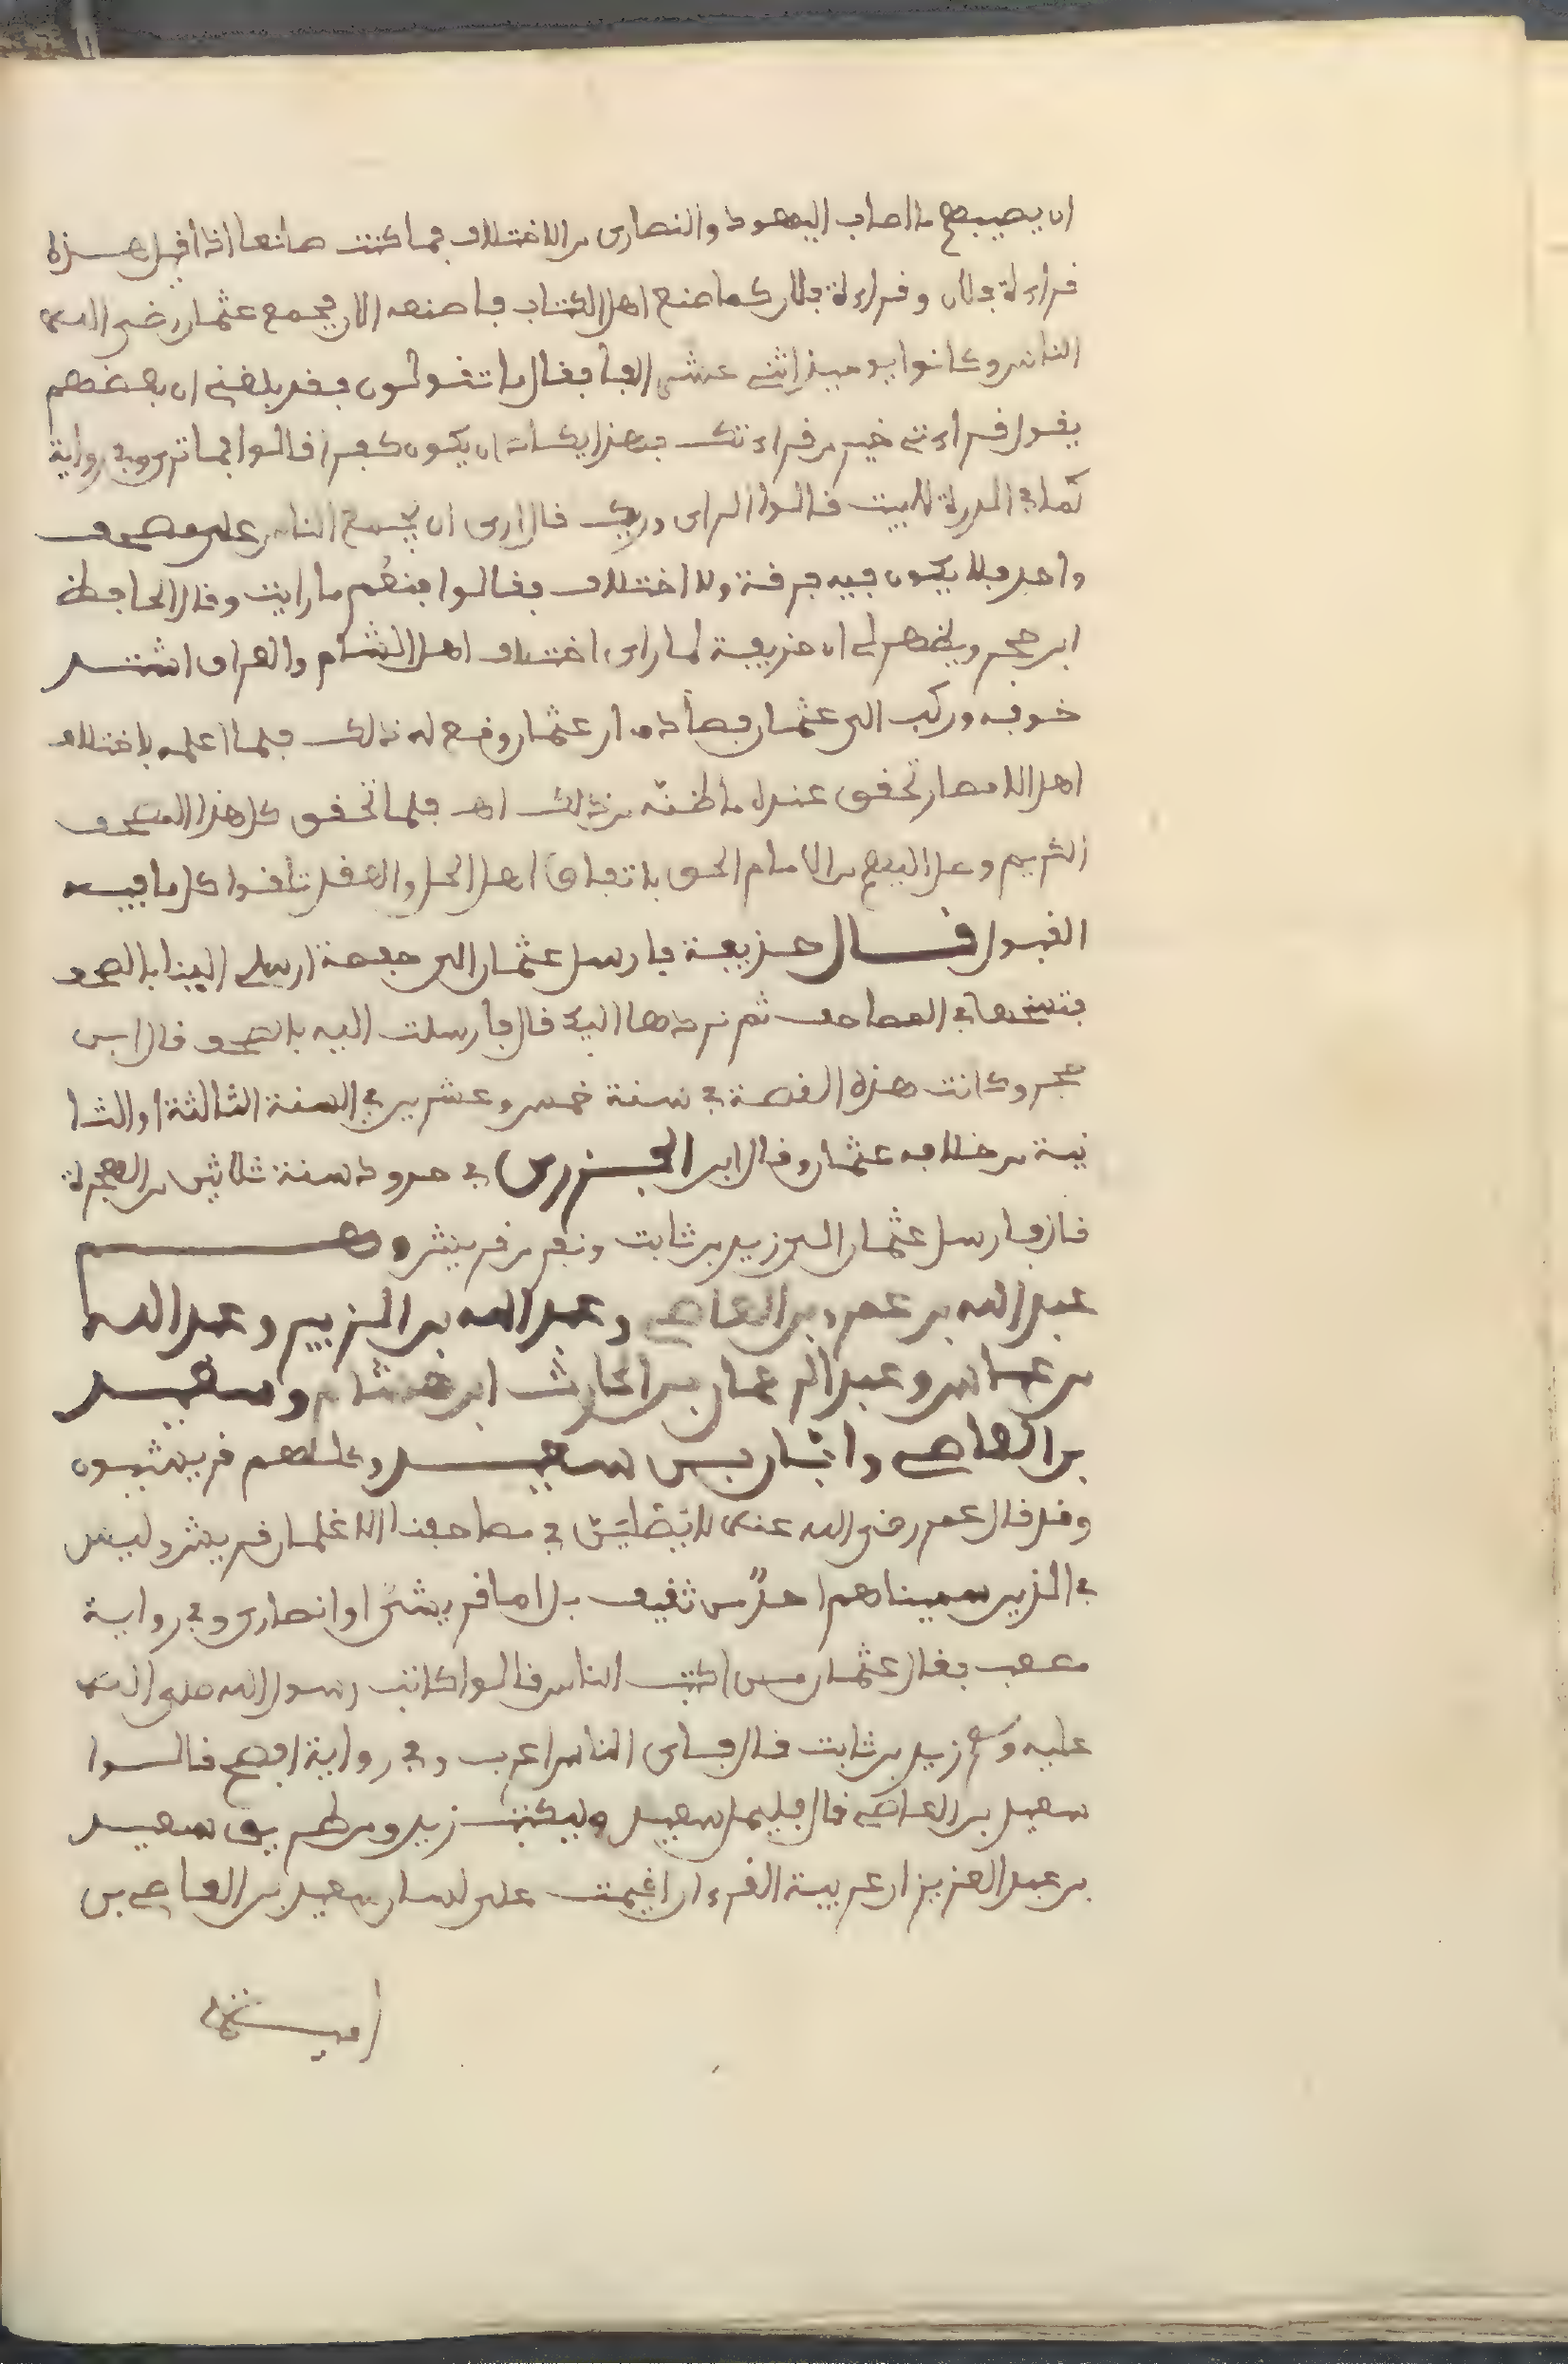 ان يصيبهم ما اصاب اليهود والنصارى من الاختلاف فما كنت صانعا اذا قيل هذه
قراءة فلان وقراءة فلان كما صنع اهل الكتاب فاصنعه الان فجمع عثمان رضي الله عنه
الناس وكانوا يوميذ اثني عشر الفا فقال ما تقولون فقد بلغني ان بعضهم
يقول قراءتي خير من قراءتك فهذا يكاد ان يكون كفرا قالوا فما ترى وفي رواية
كما في الدرة قالوا الراي رايك قال ارى ان يجمع الناس على مصحف
واحد فلا يكون فيه فرقة ولا اختلاف فقالوا فنعم ما رايت وقال الحافظ
ابن حجر ويظهر لي ان حذيفة لما راى اختلاف اهل الشام والعراق اشتد
خوفه وركب الى عثمان فصادف ان عثمان وقع له ذالك فلما اعلمه باختلاف
اهل الامصار تحقق عنده ما ظنّه من ذالك اهـ فلما تحقق كل هذا المصحف
الكريم وعلى اليهم من الامام الحق باتفاق اهل الحل والعقد تلقوا كل ما فيه
القبول قال حذيفة فارسل عثمان الى حفصة ارسلي الينا بالصحف
فننسخها في المصاحف ثم نردها اليك قال فارسلت اليه بالصحف قال ابن
حجر وكانت هذه القصة في سنة خمس وعشرين في السنة الثالثة او الثا
نية من خلافه عثمان وقال ابن الجزري في حدود سنة ثلاثين من الهجرة
قال فارسل عثمان الى زيد بن ثابت ونفر من قريش وهم
عبد الله بن عمرو بن العاصي وعبد الله بن الزبير وعبد الله
بن عباس وعبد الرحمان بن الحارث ابن هشام وسعيد
بن العاصي وابّان بن سعيد وكلهم قريشيون
وقد قال عمر رضي الله عنه لا يمليَنّ في مصاحفنا الا غلمان قريش وليس
في الذين سميناهم احدٌ من ثقيف بل اما قريشيٌ او انصاري وفي رواية
مصعب فقال عثمان من اكتب الناس قالوا كاتب رسول الله صلى الله
عليه وسلم زيد بن ثابت قال فاي الناس اعرب وفي رواية افصح قالوا
سعيد بن العاصي قال فليمل سعيد وليكتب زيد ومن طريق سعيد
بن عبد العزيز ان عربية القرءان اقيمت على لسان سعيد بن العاصي بن
اميـة